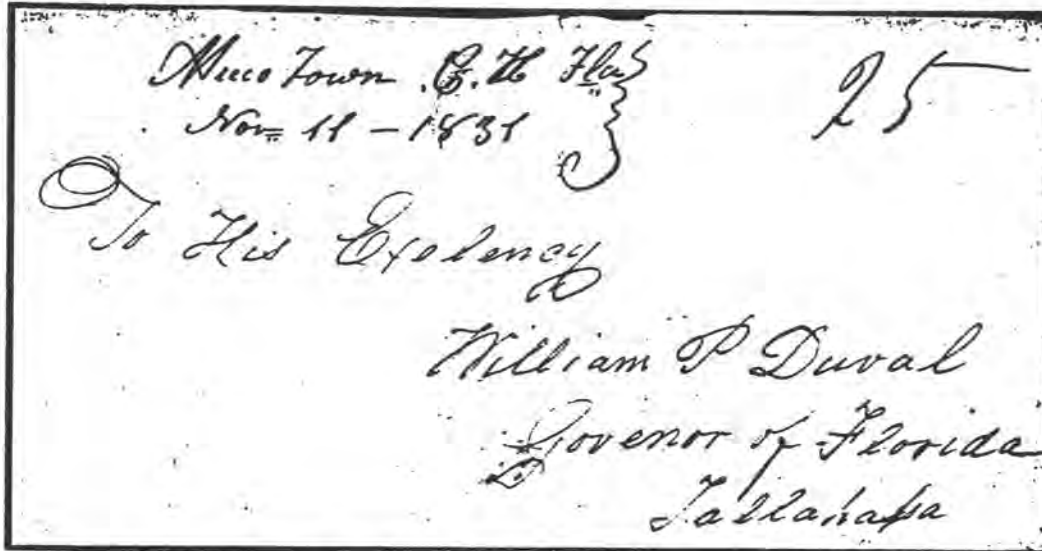 Micco Town C. H Fla
25
Nov 11 - 1831
To His Exelency
William P Duval
Govenor of Florida
Tallahassa